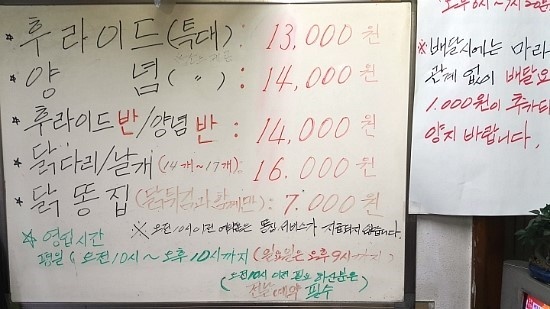 * 후라이드(특대): 13,000원
* 양 념( 〃 ): 14,000원
* 후라이드반/양념반: 14,000원
* 닭다리/날개(14개~17개) 16.000원
* 닭똥집(닭튀김과 함께만): 7.000원
☆ 영업시간
※ 오전10시이전 서비스가 지급되지 않습니다.
평일 (오전10시~오후10시까지 (일요일은 오후9시까지)
(오전10시 이전 필요 하신분은
전날예약 필수
※배달시에는 마라
관계 없이 배달요
1.000원이 추가되
양지 바랍니다.